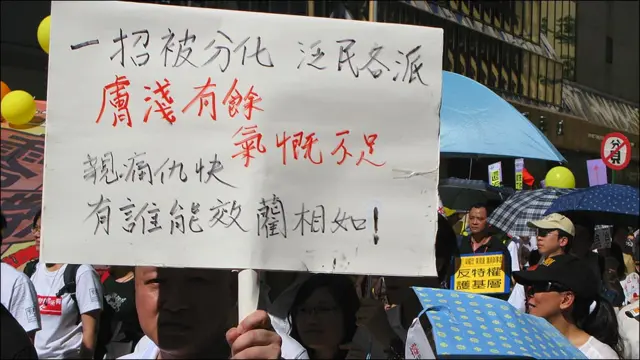 一招被分化 泛民各派
膚淺有餘
氣慨不足
親痛仇快
有誰能效藺相如!
反特權
護基層